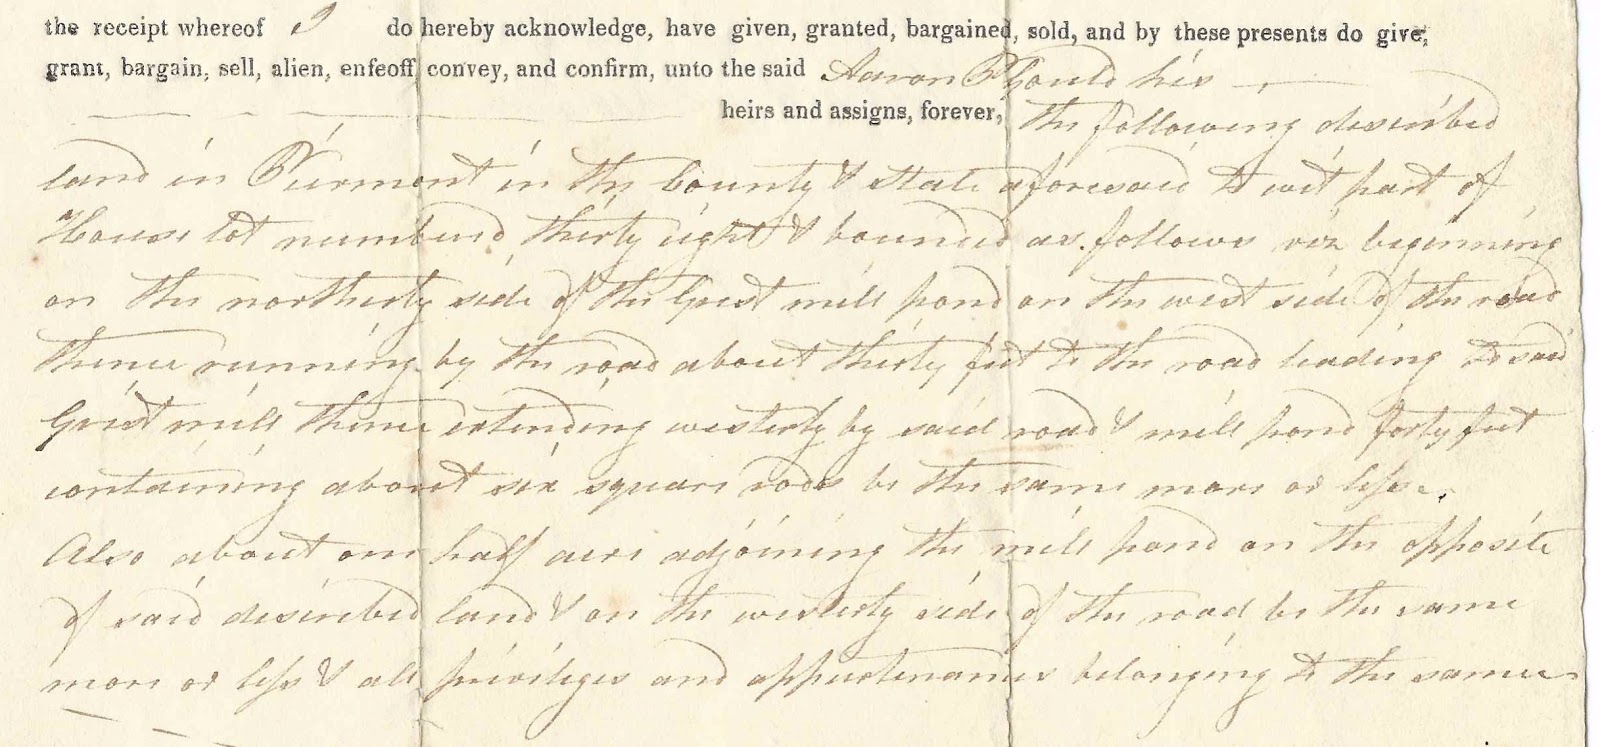 the receipt whereof I do hereby acknowledge, have given, granted, bargained, sold, and by these presents do give,
grant, bargain, sell, alien, enfeoff, convey, and confirm, unto the said Aaron P Gould his
heirs and assigns, forever, the following described
land in Piermont in the County & State aforesaid to wit part of
House lot numbered thirty eight & bounded as follows viz beginning
on the northerly side of the Grist mill pond on the west side of the road
thence running by the road about thirty feet to the road leading to said
Grist mill thence extending westerly by said road & mill pond forty feet
containing about six square rods be the same more or less.
Also about one half acre adjoining the mill pond on the opposite
of said described land & on the westerly side of the road be the same
more or less & all privileges and appurtenances belonging to the same